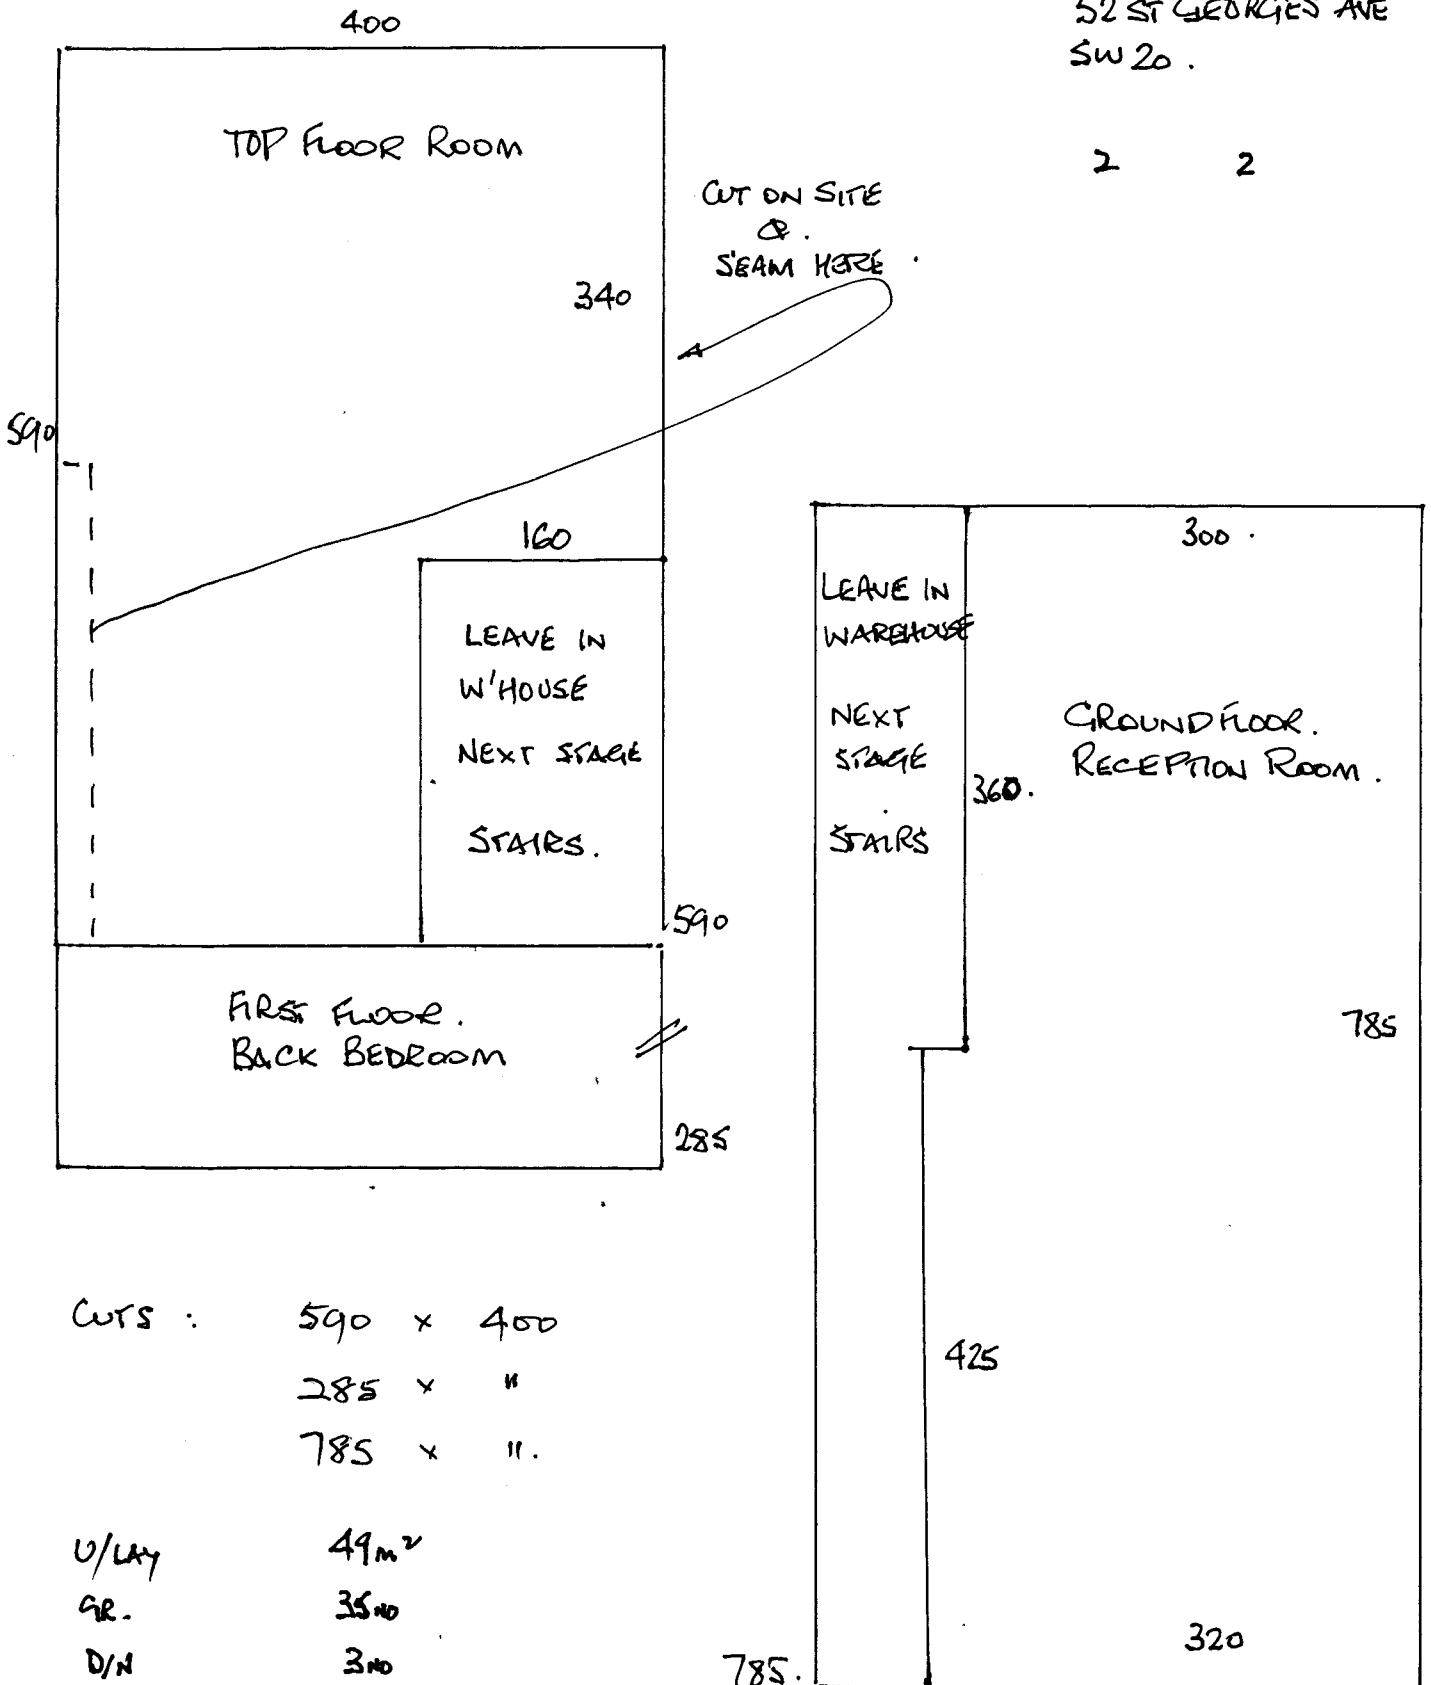 52 ST GEORGES AVE
SW 20.
2 2
400
TOP FLOOR ROOM
CUT ON SITE
&.
SEAM HERE.
340
590
160
LEAVE IN
W'HOUSE
NEXT STAGE
STAIRS.
590
FIRST FLOOR.
BACK BEDROOM
285
300.
LEAVE IN
WAREHOUSE
NEXT
STAGE
STAIRS
360.
GROUND FLOOR.
RECEPTION ROOM.
785
425
320
785.
CUTS : 590 x 400
285 x "
785 x ".
U/LAY 49m²
GR. 35NO
D/N 3NO